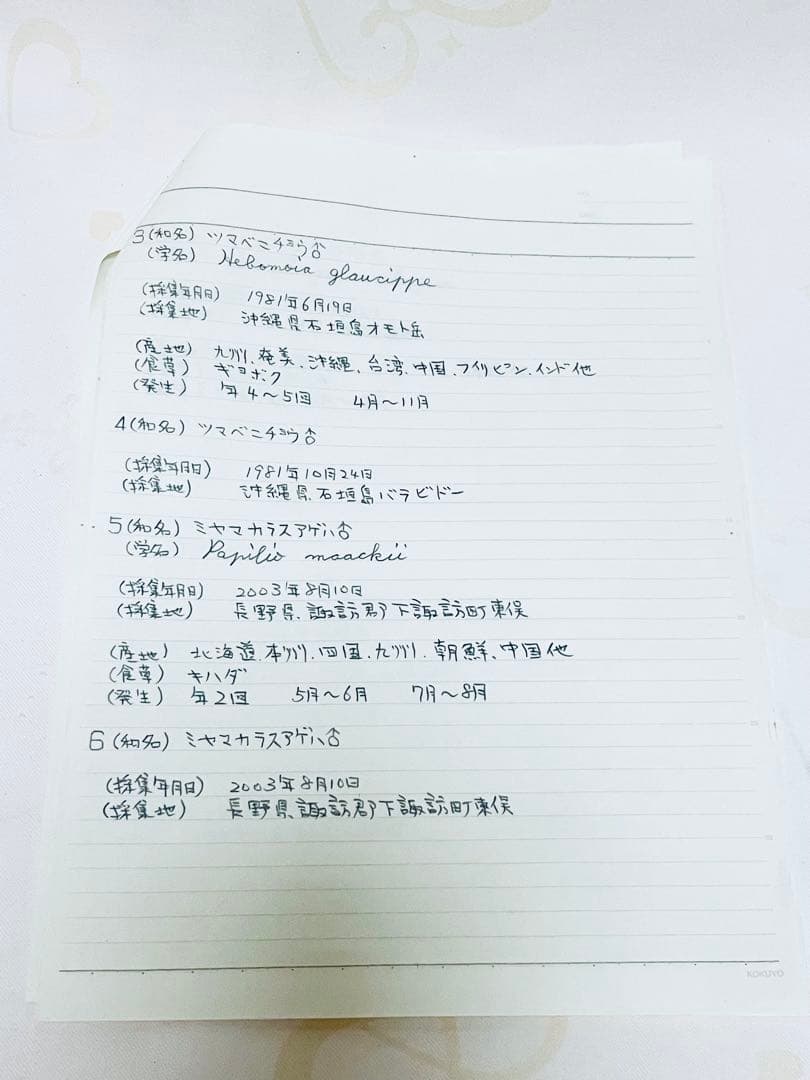 3(和名) ツマベニチョウ♂
(学名) Hebomoia glaucippe
(採集年月日) 1981年6月19日
(採集地) 沖縄県石垣島オモト岳
(産地) 九州、奄美、沖縄、台湾、中国、フィリピン、インド他
(食草) ギョボク
(発生) 年4〜5回 4月〜11月
4(和名) ツマベニチョウ♂
(採集年月日) 1981年10月24日
(採集地) 沖縄県石垣島バラビドー
5(和名) ミヤマカラスアゲハ♂
(学名) Papilio maackii
(採集年月日) 2003年8月10日
(採集地) 長野県、諏訪郡下諏訪町東俣
(産地) 北海道、本州、四国、九州、朝鮮、中国他
(食草) キハダ
(発生) 年2回 5月〜6月 7月〜8月
6(和名) ミヤマカラスアゲハ♂
(採集年月日) 2003年8月10日
(採集地) 長野県、諏訪郡下諏訪町東俣
KOKUYO